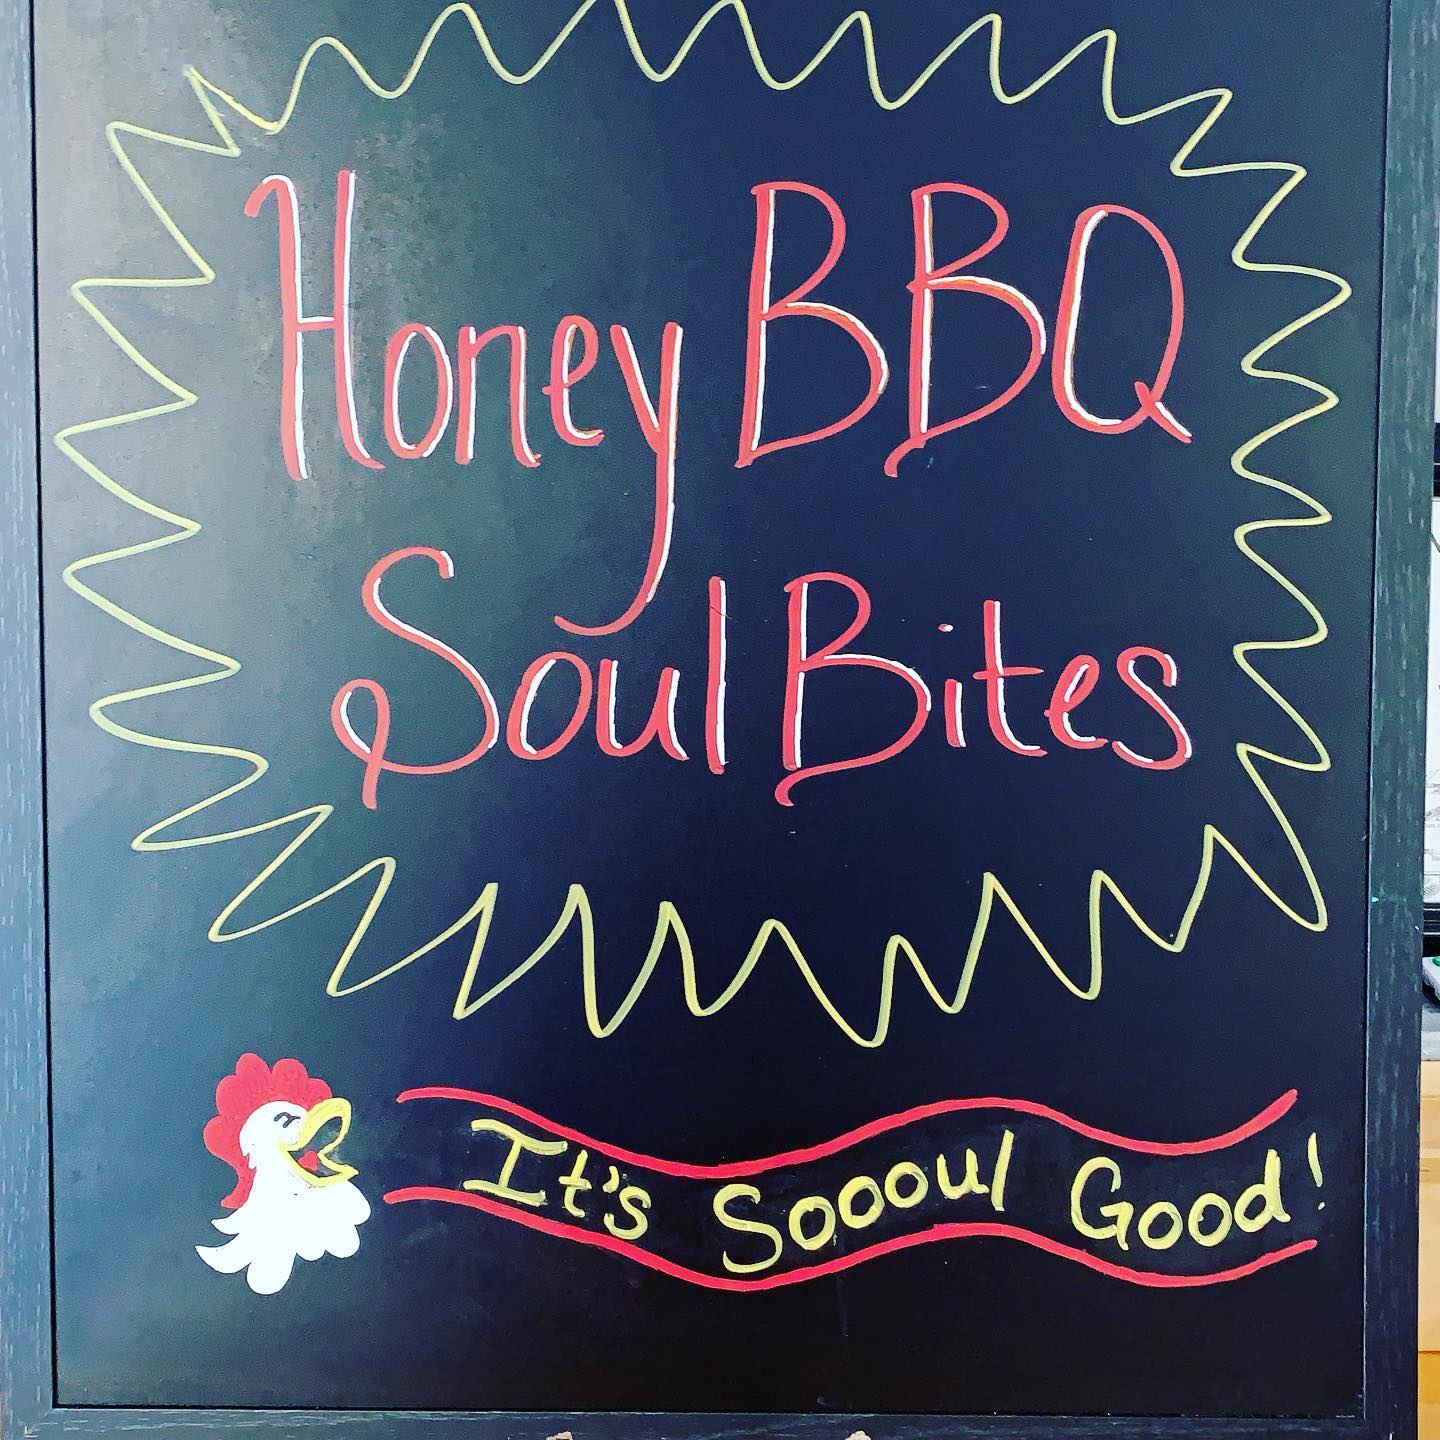 Honey BBQ
Soul Bites
It's Soooul Good!